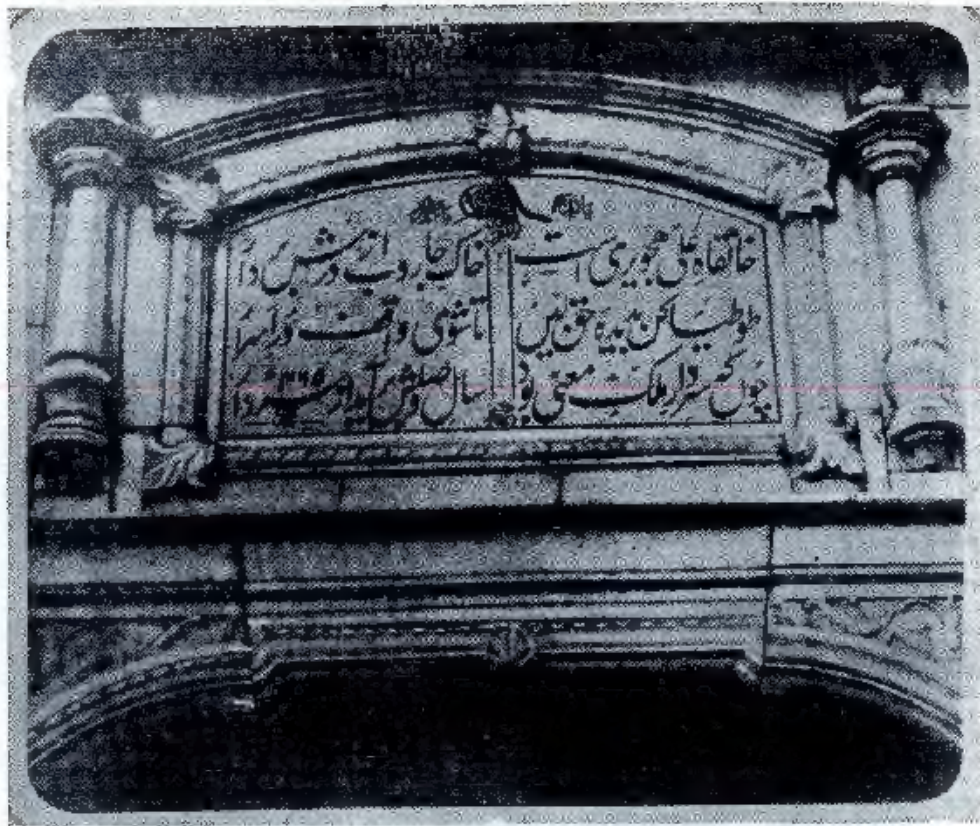 خانقاہ علی ہجویری است خاک جاروب از درش بردار
طوطیا کن بدیدۂ حق بین تا شوی واقف در اسرار
چونکہ سردار ملک معنی بود سال وصلش برآید از سردار